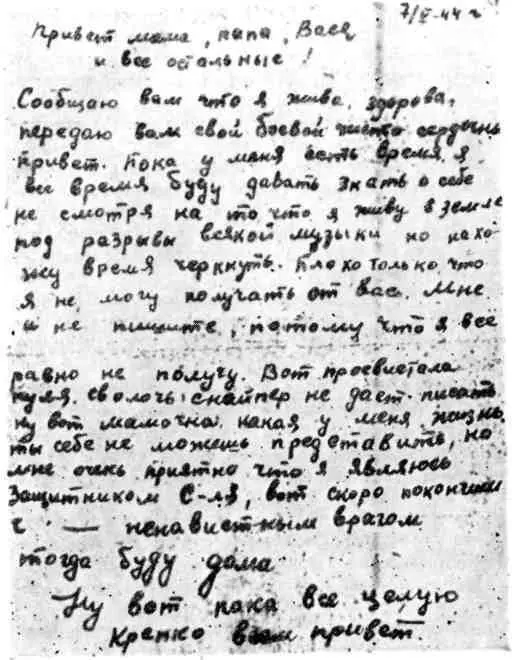 7/V-44 г
Привет мама, папа, Вася
и все остальные!
Сообщаю вам что я жива, здорова,
передаю вам свой боевой чисто сердечн
привет. Пока у меня есть время, я
все время буду давать знать о себе
не смотря на то, что я живу в земле
под разрывы всякой музыки но нахо-
жу время черкнуть. Плохо только, что
я не могу получать от вас. Мне
и не пишите, потому что я все
равно не получу. Вот просвистала
пуля, сволочь снайпер не дает писать
ну вот мамочка какая у меня жизнь
ты себе не можешь представить, но
мне очень приятно что я являюсь
Защитником С-ля, вот скоро покончим
с — ненавистным врагом
тогда буду дома
Ну вот пока все целую
Крепко всем привет.